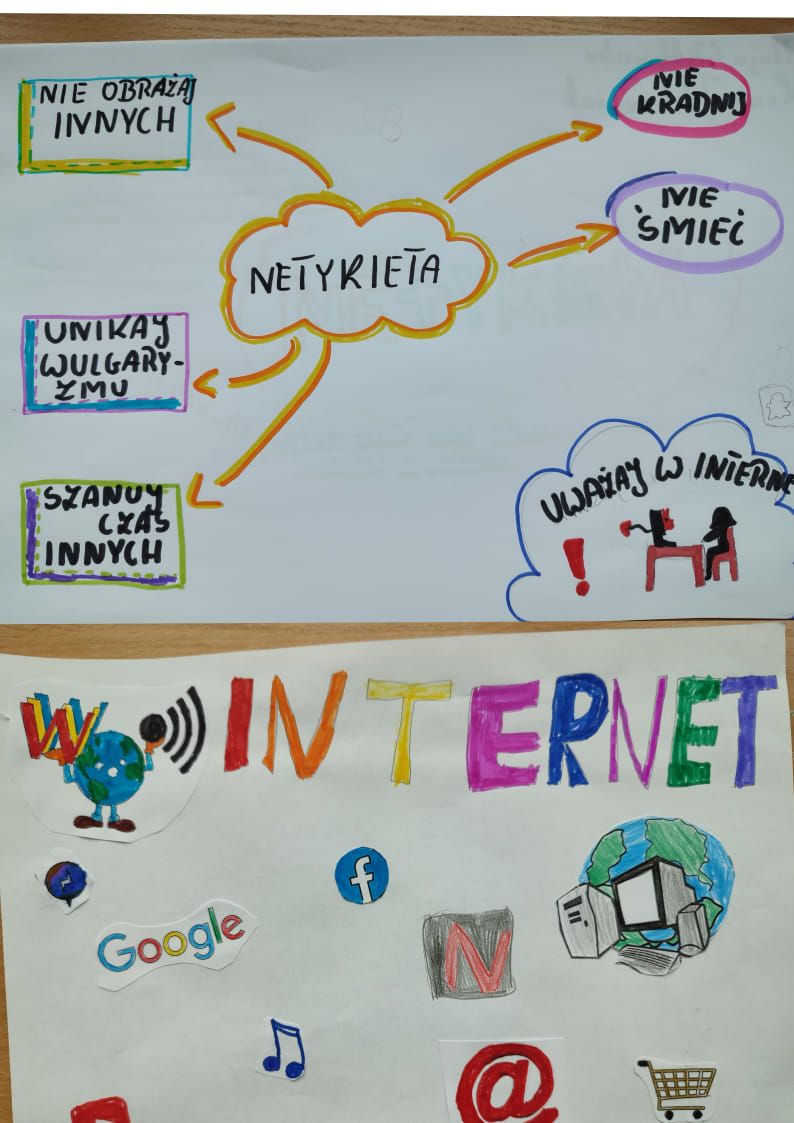 NIE OBRAŻAJ
INNYCH
NIE
KRADNIJ
NIE
ŚMIEĆ
NETYKIETA
UNIKAJ
WULGARY-
ZMU
SZANUJ
CZAS
INNYCH
UWAŻAJ W INTERNE
!
W
INTERNET
f
Google
N
@